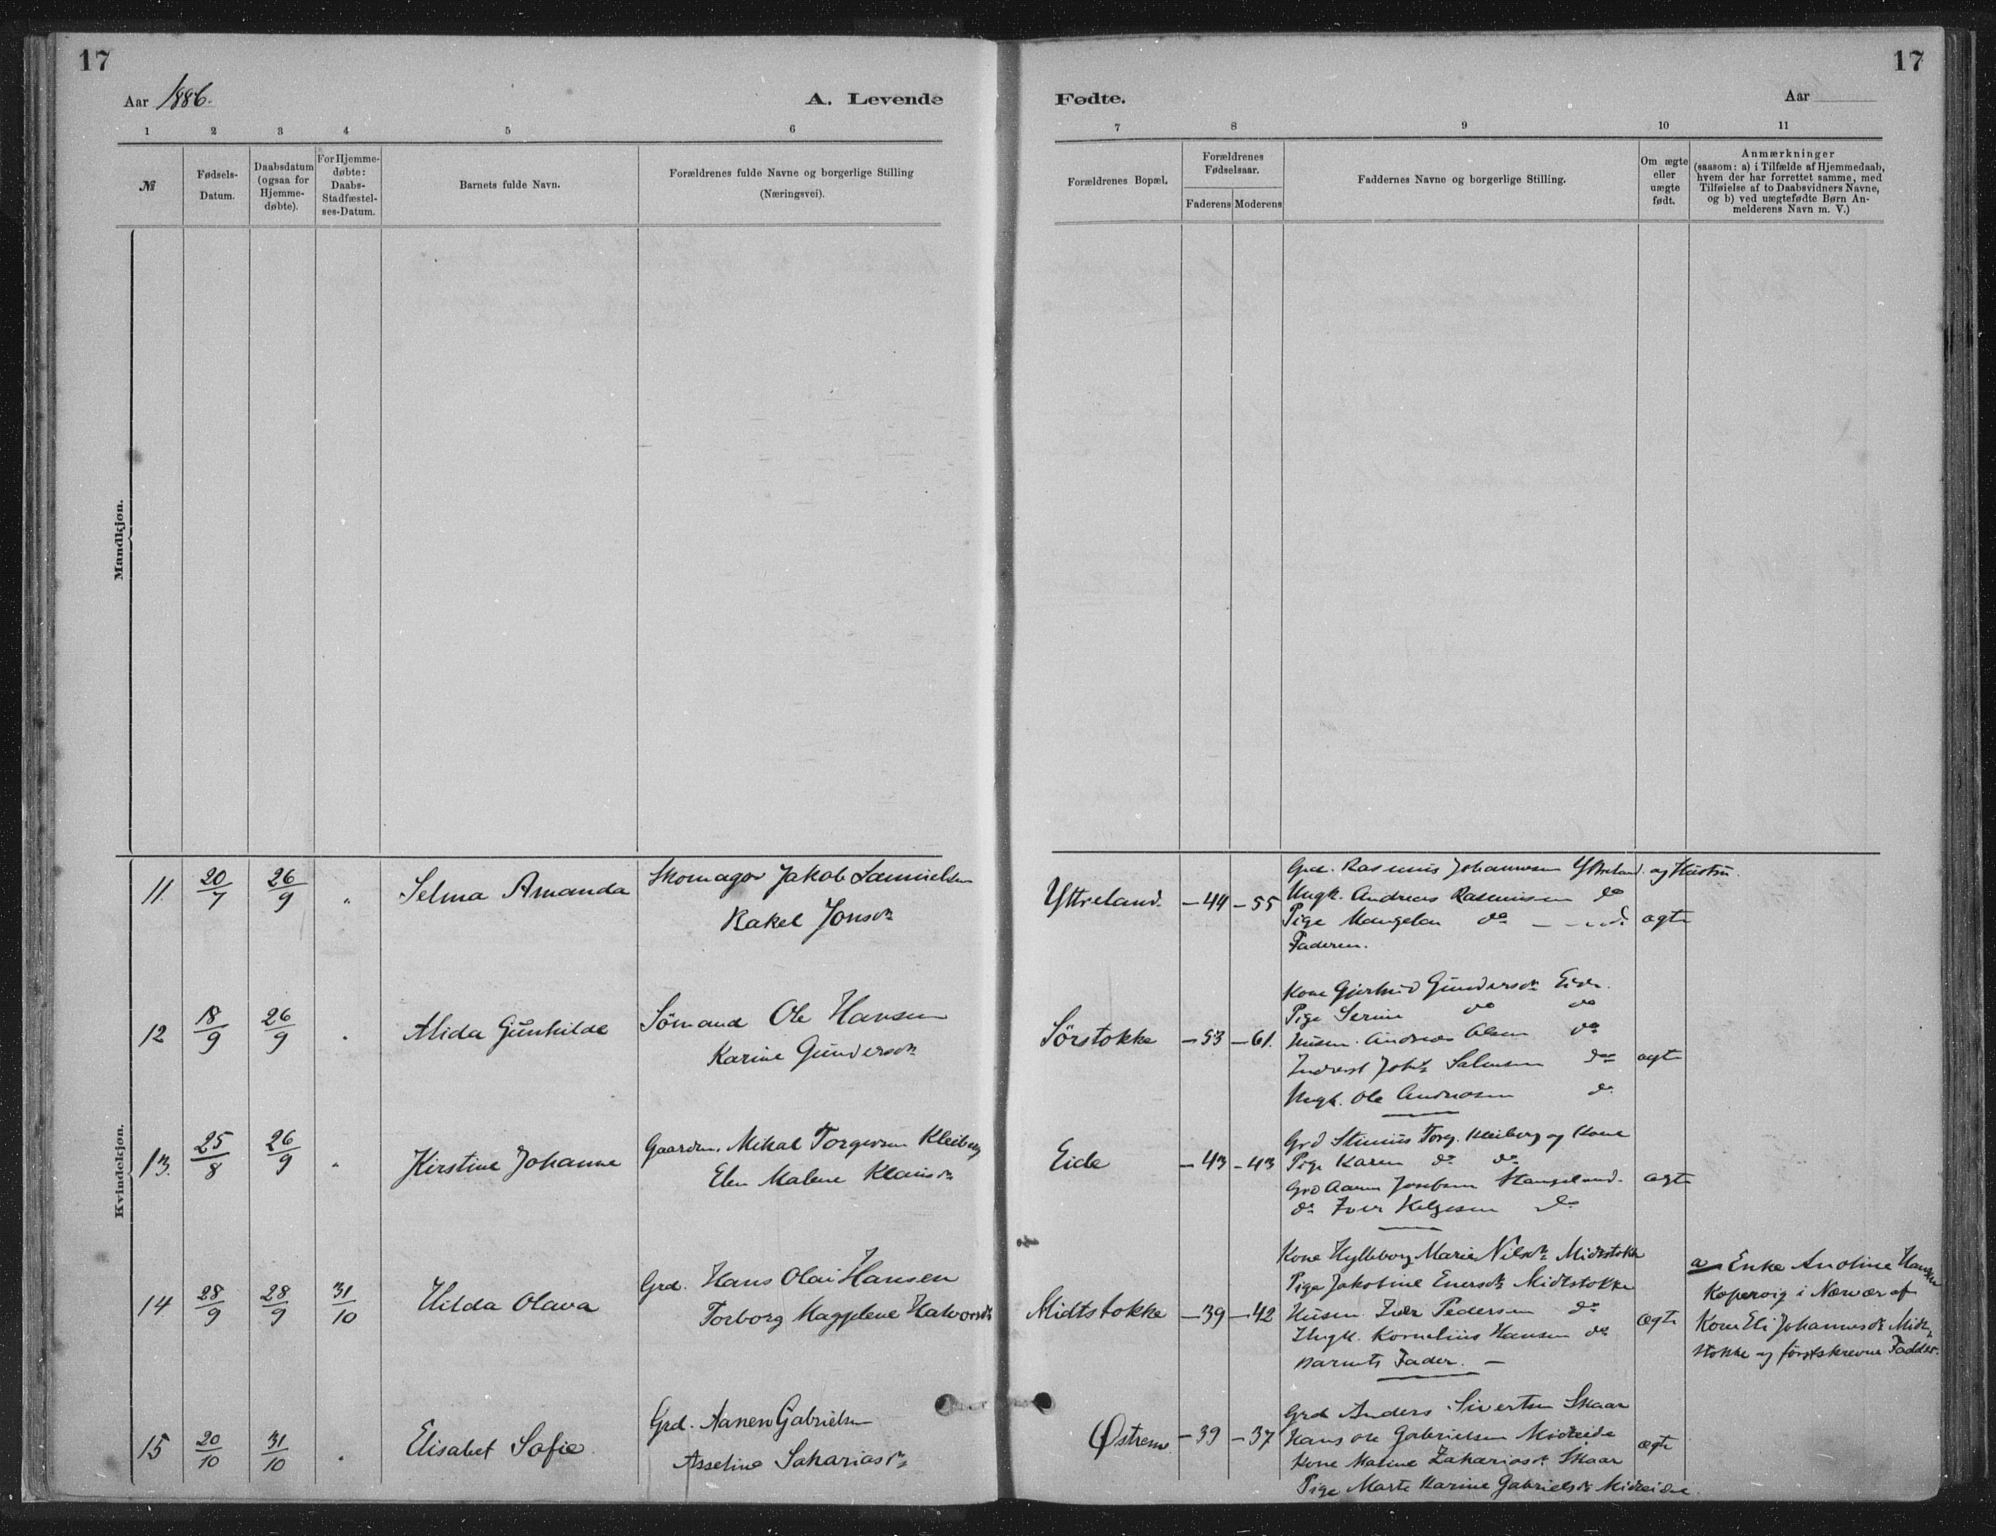 17
Aar 1886.
A. Levende
1 2 3 4 5 6
№
Fødsels-
Datum.
Daabsdatum
(ogsaa for
Hjemme-
døbte).
For Hjemme-
døbte:
Daabs-
Stadfæstel-
ses-Datum.
Barnets fulde Navn.
Forældrenes fulde Navne og borgerlige Stilling
(Næringsvei).
Mandkjøn.
Kvindekjøn.
11. 20/7 26/9 " Selma Amanda Skomager Jakob Samuelsen
Rakel Jonsdr
12 18/9 26/9 " Alida Gunhilde Sömand Ole Hansen
Karine Gundersdr
13. 25/8 26/9 " Kirstine Johanne Gaardm. Mikal Torgersen Kleiberg
Elen Malene Klausdr
14 28/9 28/9 31/10 Hilda Olava Grd. Hans Olai Hansen
Torborg Magdelene Halvorsdr
15 20/10 31/10 " Elisabet Sofie. Grd. Aanen Gabrielsen
Asseline Sakariasdr
17
Fødte.
Aar
7 8 9 10 11
Forældrenes Bopæl.
Forældrenes
Fødselsaar.
Faderens Moderens
Faddernes Navne og borgerlige Stilling.
Om ægte
eller
uægte
født.
Anmærkninger
(saasom: a) i Tilfælde af Hjemmedaab,
hvem der har forrettet samme, med
Tilføielse af to Daabsvidners Navne,
og b) ved uægtefødte Børn An-
melderens Navn m. V.)
Grd. Rasmus Johannesen Yttreland og Hustru.
Yttreland. -44 -55 Ungk. Andreas Rasmussen do
Pige do do ægte
Faderen.
Kone Gjertrud Gundersdr Eide.
Pige Serine do do
Sörstokke -53 -61. Husm. Andreas Olsen do
Salvesen do ægte
Ungk. Ole Andreasen do
Grd Torg. Kleiberg og Kone
Eide -43 -43 Pige Karen do do
Grd Aanen Stangeland. ægte
do Iver Helgesen do
Kone Hylleborg Marie Nilsdr Midtstokke
Pige Jakobine Enersdr Midtstokke
Midtstokke -39 -42 Husm. Iver Pedersen do ægte
Ungk. Kornelius Hansen do
Barnets Fader. -
a Enke Anoline Hansen
Kopervig i Nærvær af
Kone Eli Johannesdr Midt-
stokke og førstskrevne Fadder.
Grd Anders Sivertsen Skaar
Østrem -39 -37 Hans Ole Gabrielsen Midteide
Kone Malene Zakariasdr Skaar ægte
Pige Marte Karine Gabrielsdr Midteide.